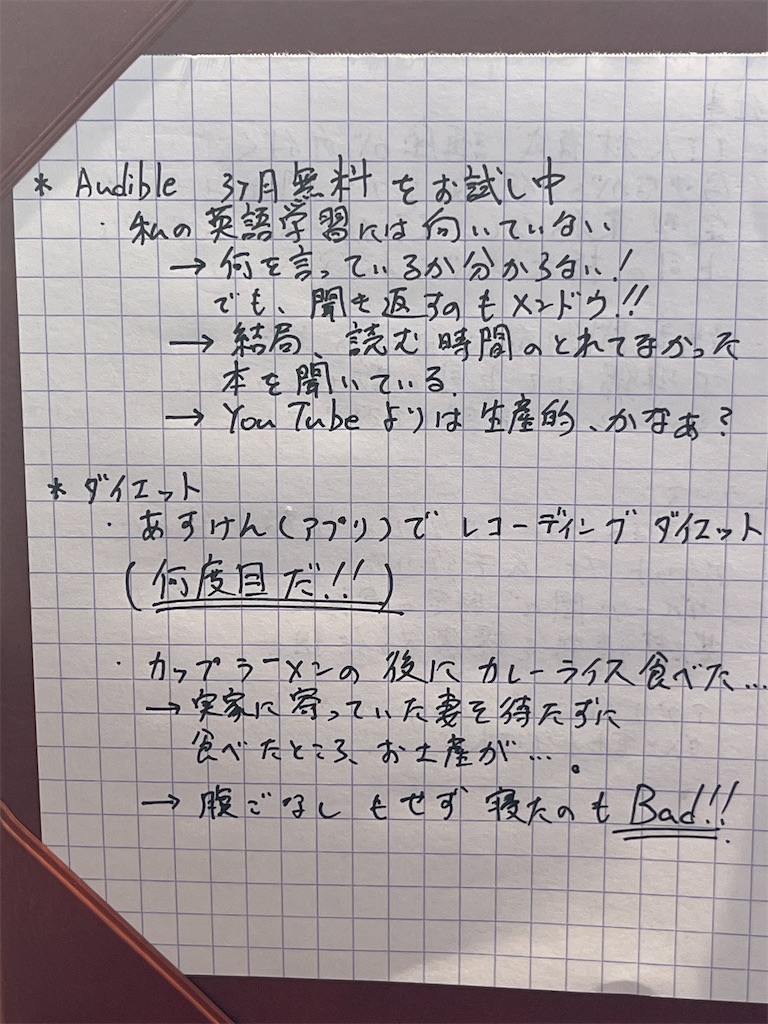 * Audible 3ヶ月無料をお試し中
・私の英語学習には向いていない
→何を言っているか分からない!
でも、聞き返すのもメンドウ!!
→結局、読む時間のとれてなかった
本を聞いている.
→YouTubeよりは生産的、かなぁ?
* ダイエット
・あすけん(アプリ)でレコーディングダイエット
(何度目だ!!)
・カップラーメンの後にカレーライス食べた…
→実家に寄っていた妻を待たずに
食べたところ、お土産が…。
→腹ごなしもせず寝たのもBad!!